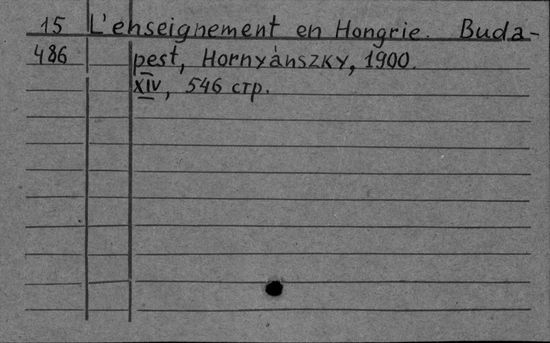 15 L'enseignement en Hongrie. Buda-
486 pest, Hornyánszky, 1900.
XIV, 546 стр.